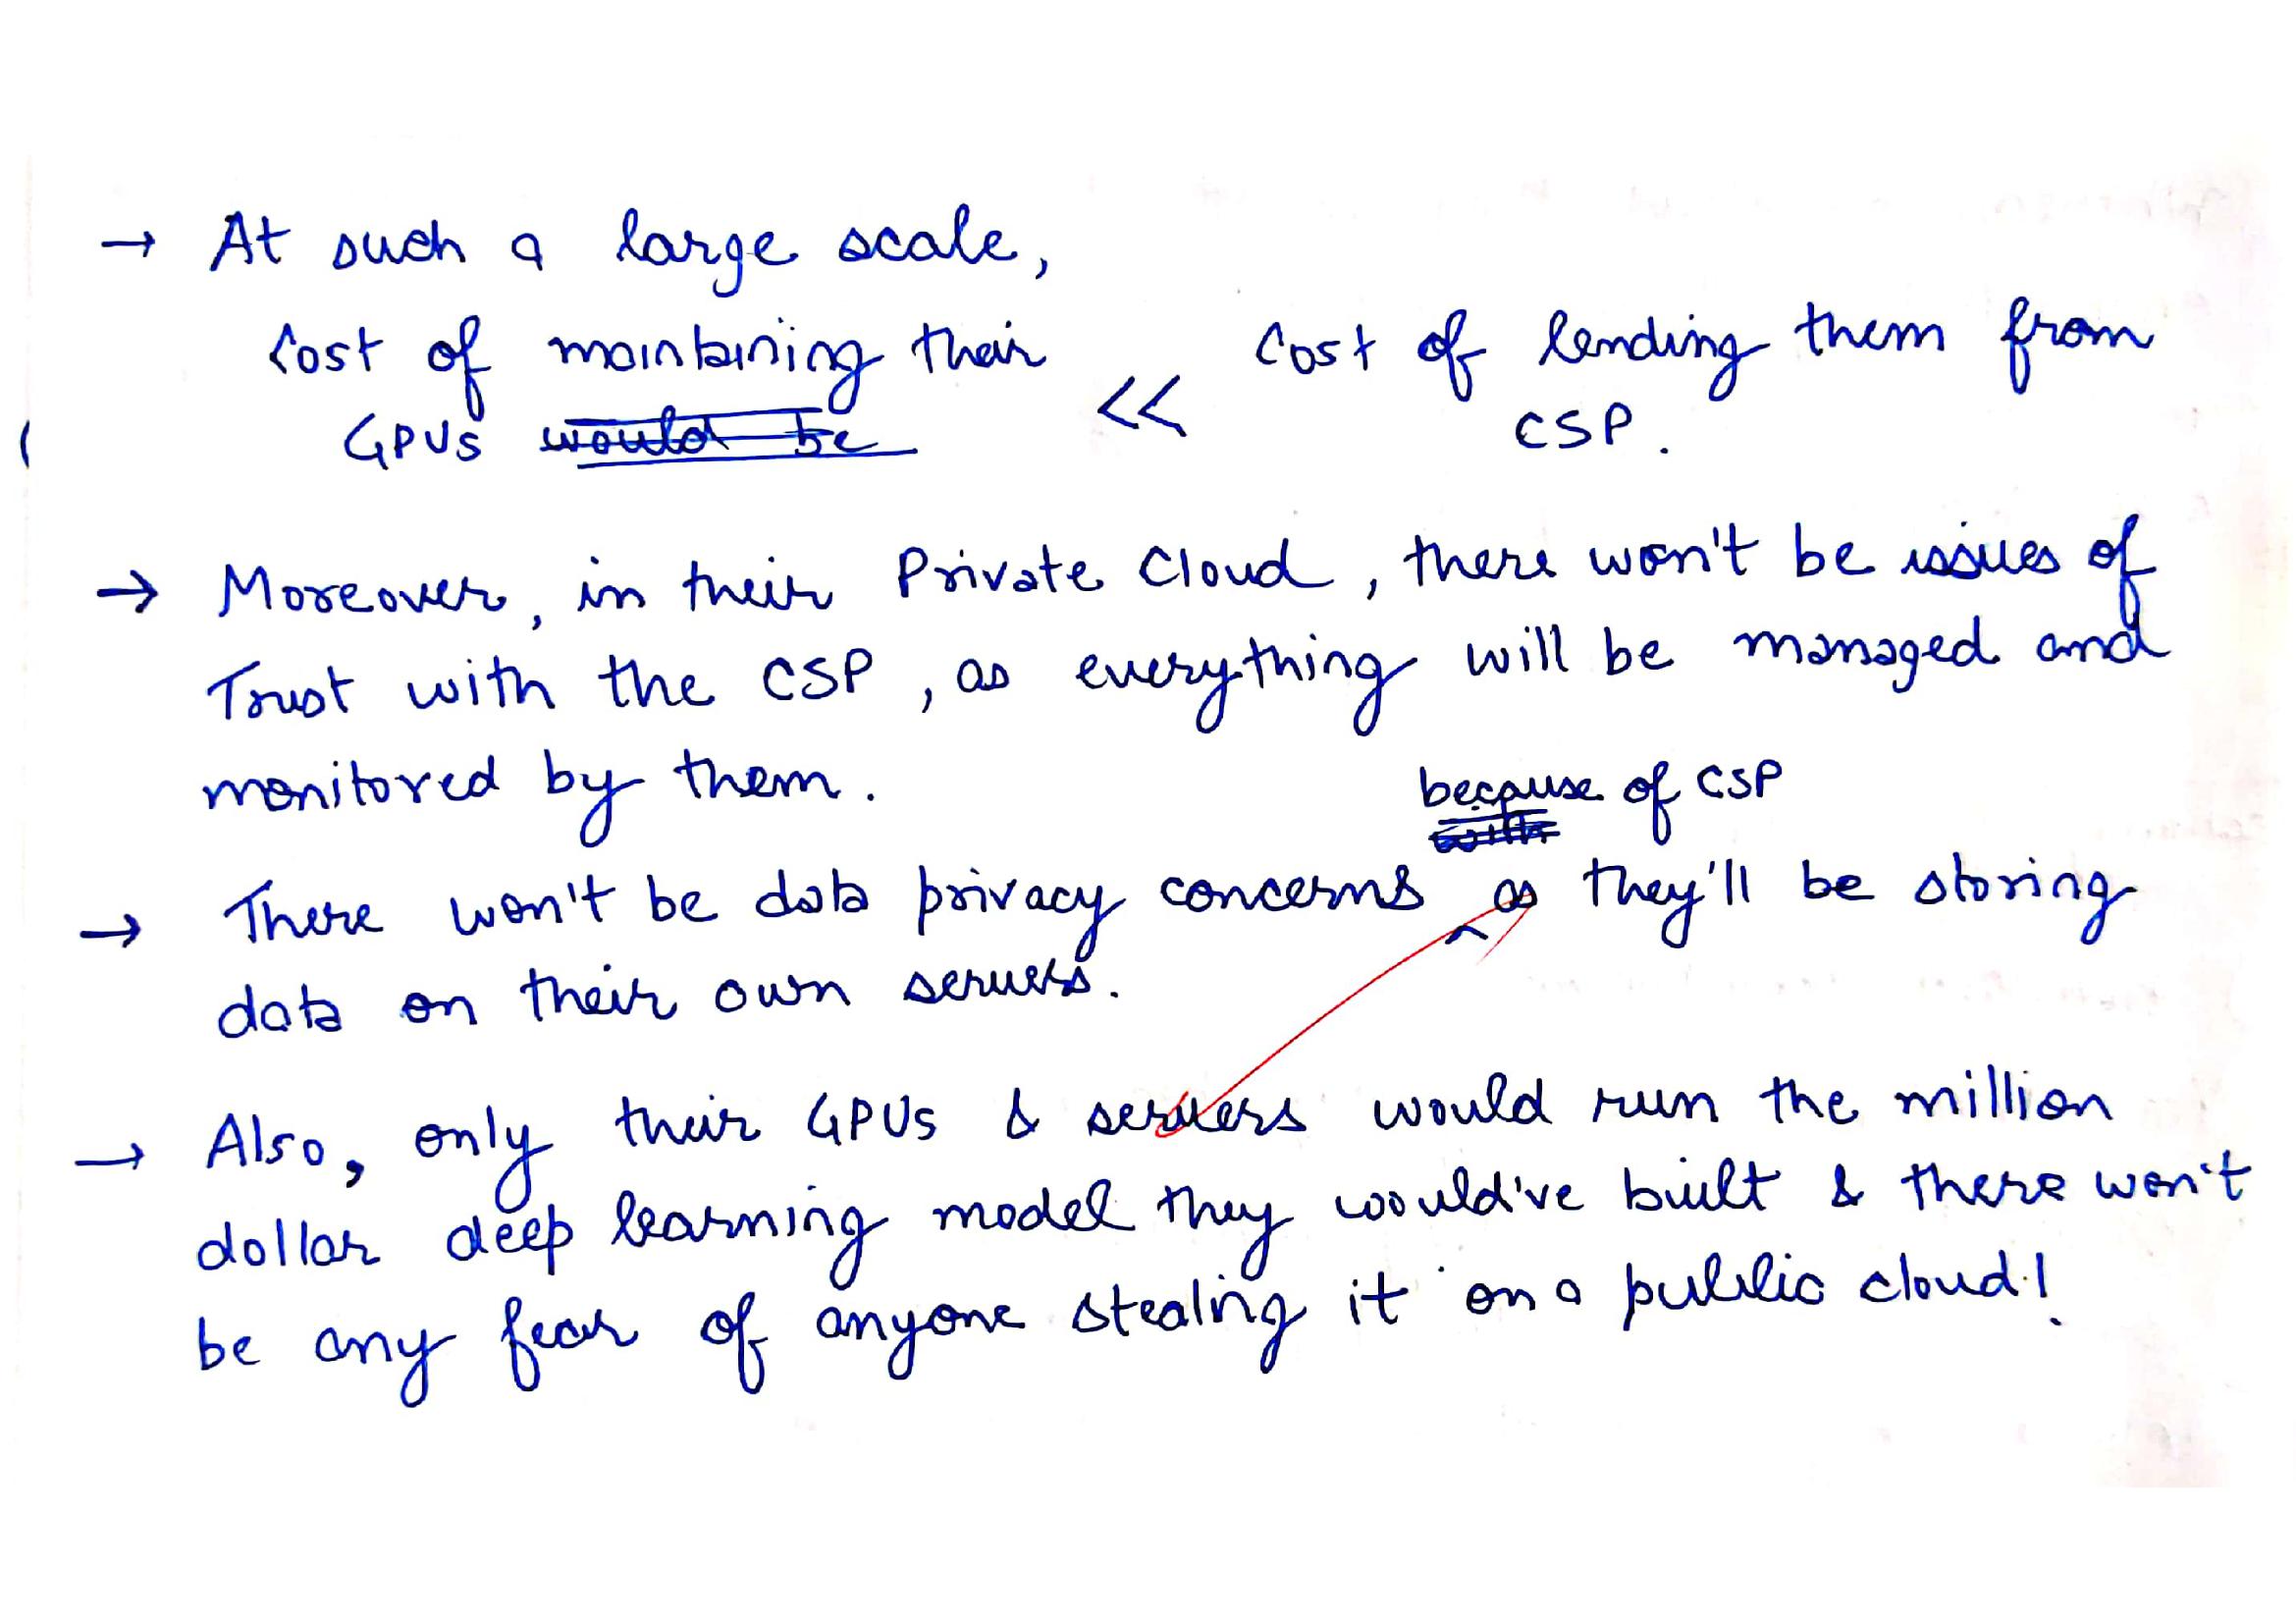 → At such a large scale,
Cost of maintaining their << Cost of lending them from
GPUs would be CSP.
→ Moreover, in their Private Cloud, there won't be issues of
Trust with the CSP, as everything will be managed and
monitored by them.
because of CSP
→ There won't be data privacy concerns ^ as they'll be storing
data on their own servers.
→ Also, only their GPUs & servers would run the million
dollar deep learning model they would've built & there won't
be any fear of anyone stealing it on a public cloud!